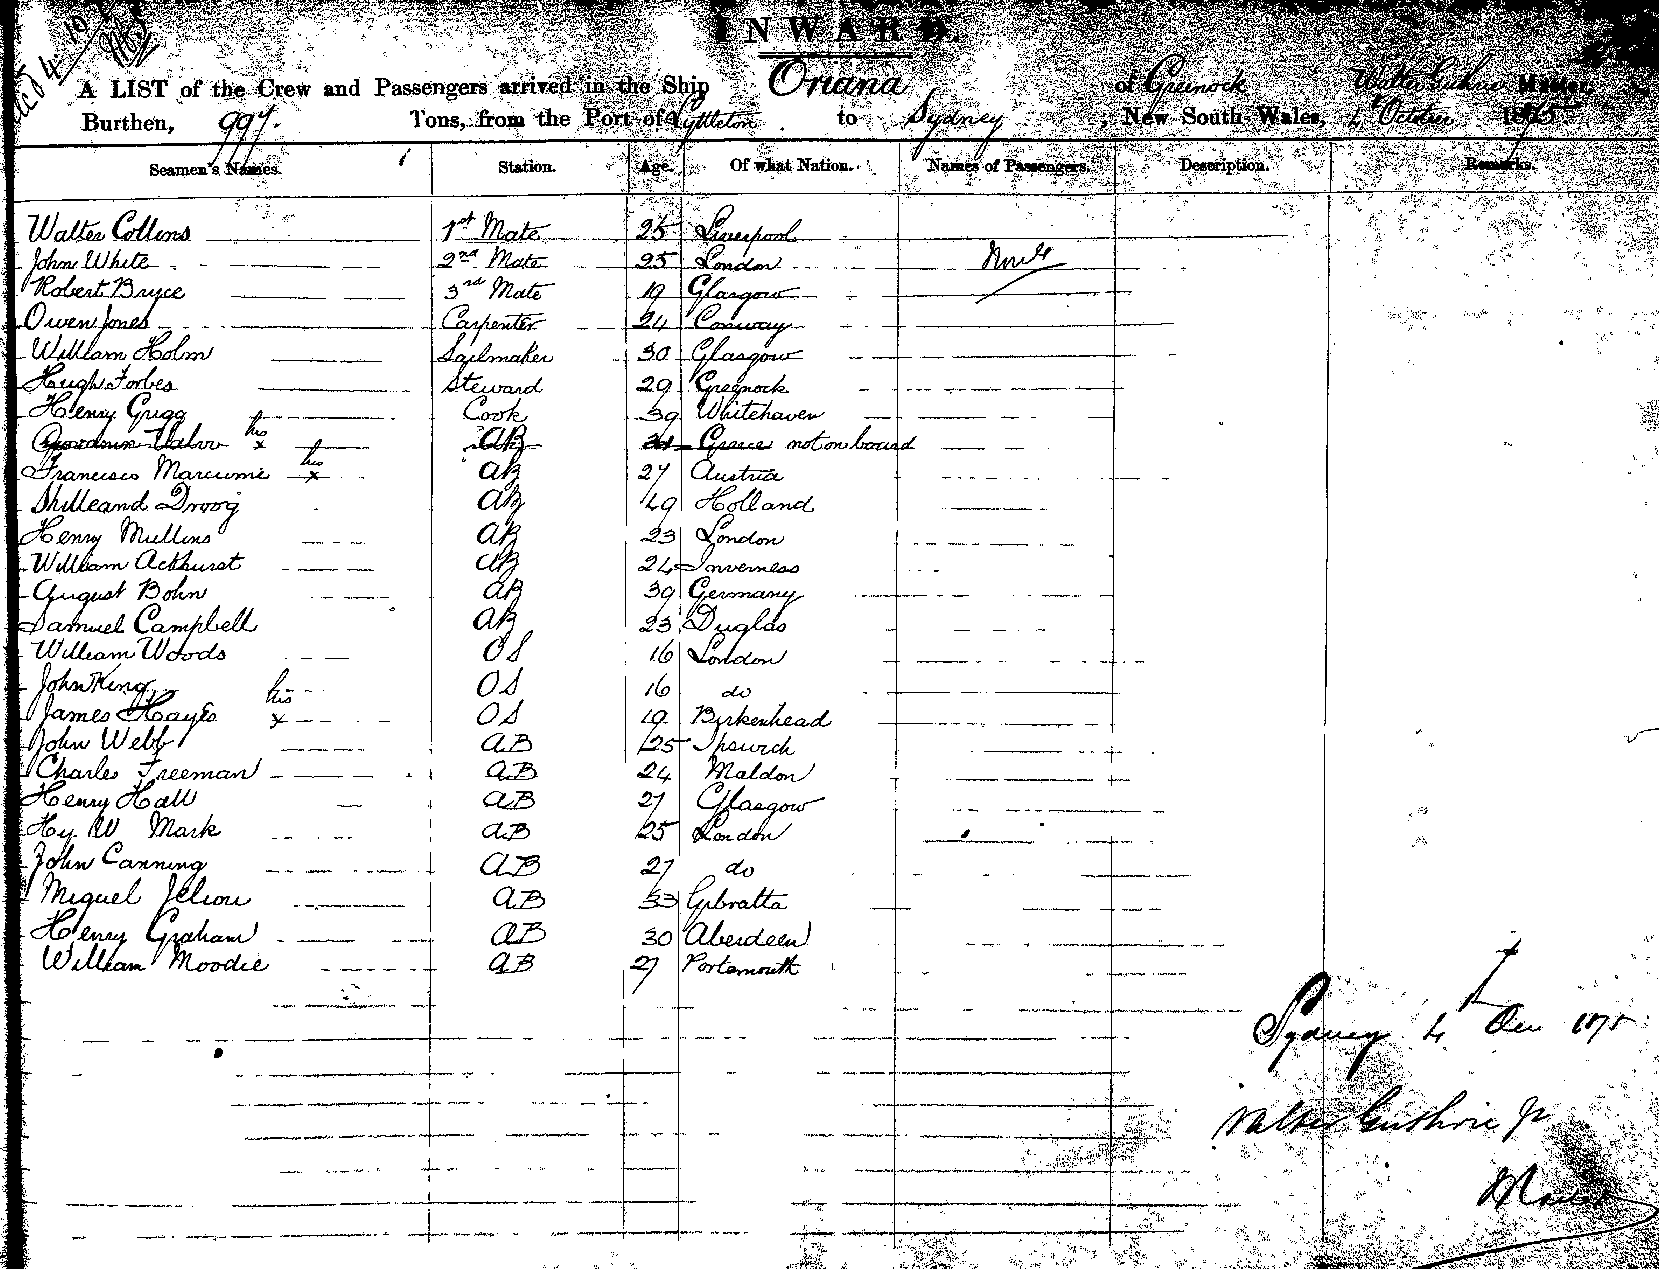 INWARD.
A LIST of the Crew and Passengers arrived in the Ship Oriana of Greenock Walter Guthrie Master,
Burthen, 997. Tons, from the Port of Lyttleton to Sydney, New South Wales, 4 October 1875
Seamen's Names. Station. Age. Of what Nation. Names of Passengers. Description. Remarks.
Walter Collins 1st Mate 25 Liverpool
John White 2nd Mate 25 London
Robert Bryce 3rd Mate 19 Glasgow
Owen Jones Carpenter 24 Conway
William Holm Sailmaker 30 Glasgow
Hugh Forbes Steward 29 Greenock
Henry Grigg Cook 39 Whitehaven
his x AB Greece not on board
Francisco his x AB 27 Austria
Droog AB 49 Holland
Henry Mullins AB 23 London
William Ackhurst AB 24 Inverness
August Bohn AB 39 Germany
Samuel Campbell AB 23 Duglas
William Woods OS 16 London
John King OS 16 do
James Hayes his x OS 19 Birkenhead
John Webb AB 25 Ipswich
Charles Freeman AB 24 Maldon
Henry Hall AB 27 Glasgow
Hy. W Mark AB 25 London
John Canning AB 27 do
Miguel AB 33 Gibratta
Henry Graham AB 30 Aberdeen
William Moodie AB 27 Portsmouth
Sydney 4 1875
Walter Guthrie Jr